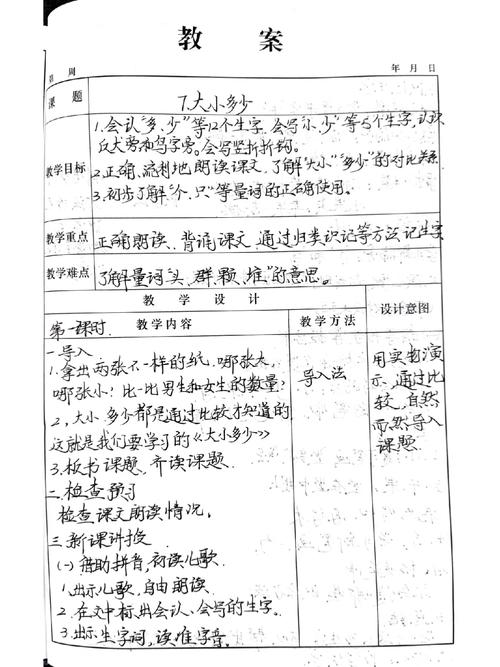 教案
第 周
年 月 日
课题
7.大小多少
教学目标
1.会认“多、少”等12个生字,会写“小、少”等5个生字,认识
反犬旁和鸟字旁。会写竖折折钩。
2.正确、流利地朗读课文,了解“大小”“多少”的对比关系
3.初步了解“个、只”等量词的正确使用。
教学重点
正确朗读、背诵课文,通过归类识记等方法记生字
教学难点
了解量词“头、群、颗、堆”的意思。
教学设计
第一课时
教学内容
教学方法
设计意图
一导入
1.拿出两张不一样的纸,哪张大,
哪张小?比一比男生和女生的数量?
2,大小、多少都是通过比较才知道的
这就是我们要学习的《大小多少》
3.板书课题,齐读课题.
二检查预习
检查课文朗读情况,
三新课讲授
(一)借助拼音,初读儿歌.
1.出示儿歌,自由朗读.
2.在文中标出会认、会写的生字.
3.出示生字词,读准字音.
导入法
用实物演
示,通过比
较,自然
而然导入
课题.